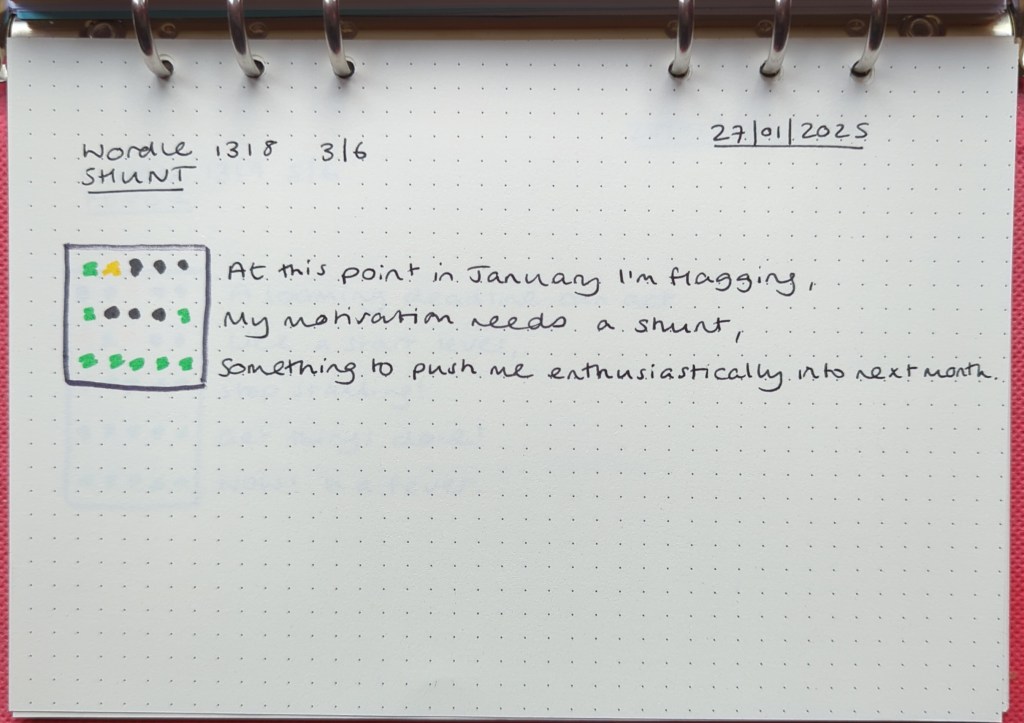 27/01/2025
Wordle 1318 3/6
SHUNT
At this point in January I'm flagging,
My motivation needs a shunt,
Something to push me enthusiastically into next month.